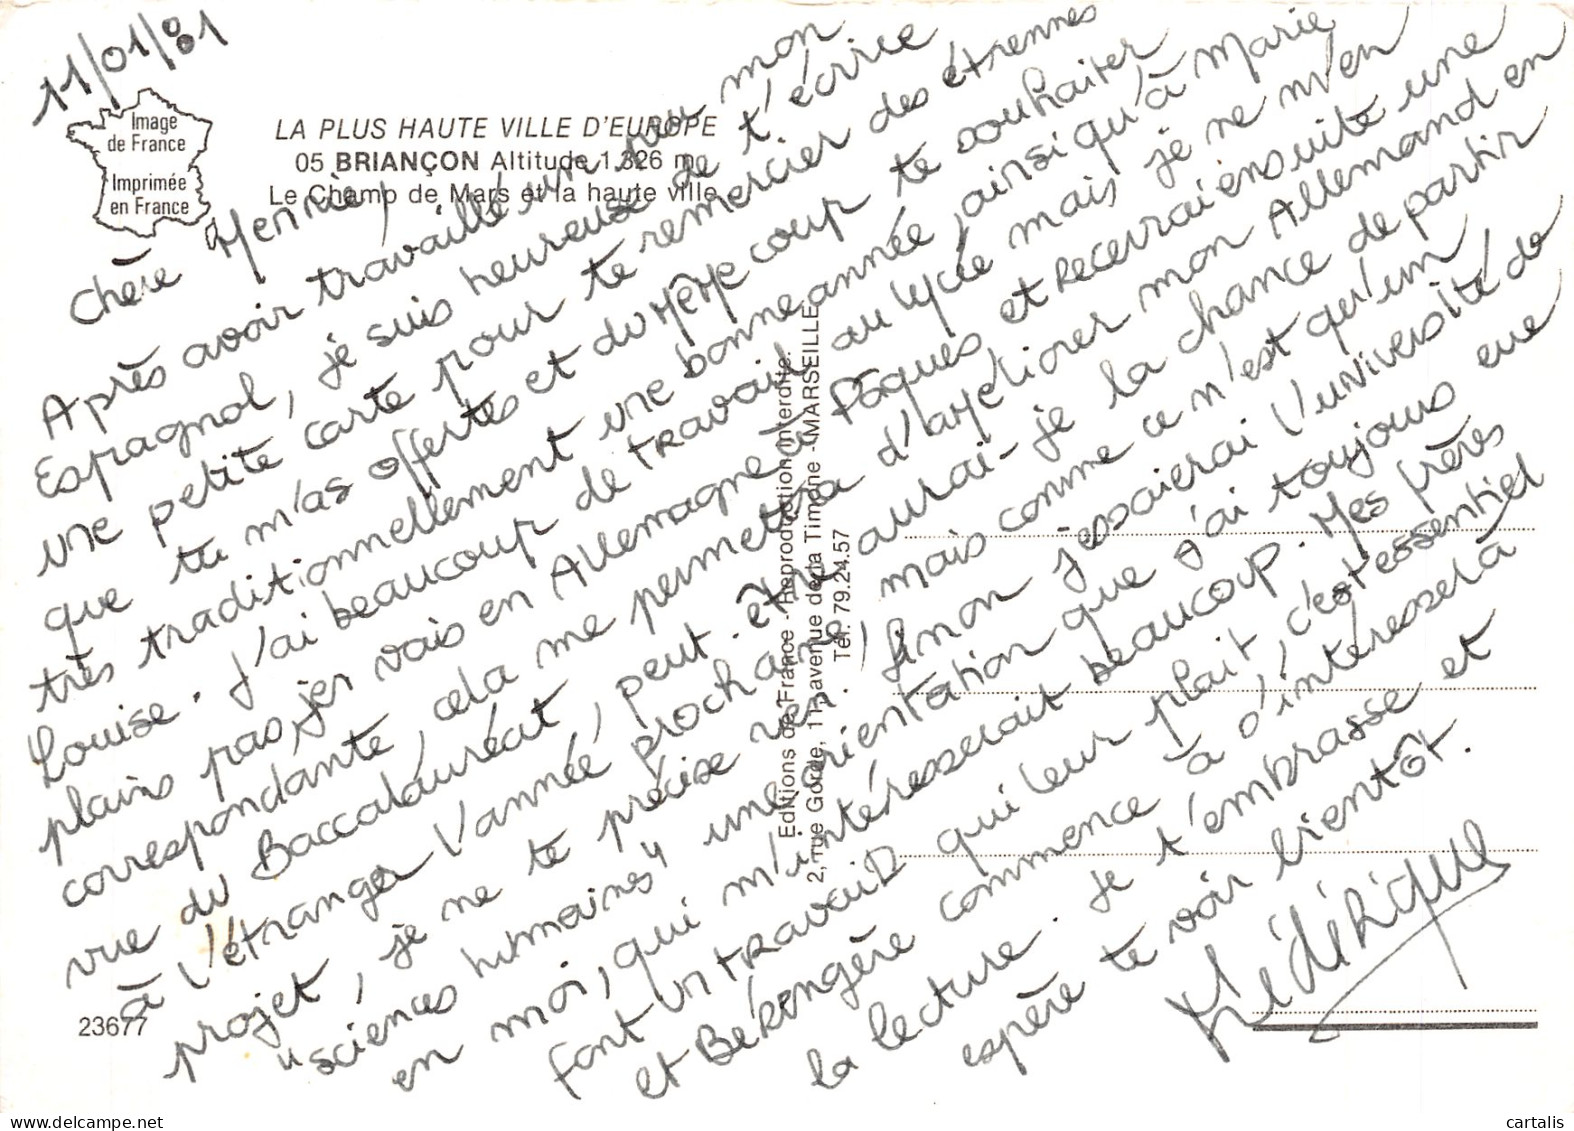 11/01/81
Image
de France
Imprimée
en France
LA PLUS HAUTE VILLE D'EUROPE
05 BRIANÇON Altitude 1.326 m.
Le Champ de Mars et la haute ville
Chère Mennie,
Après avoir travaillé un peu mon
Espagnol, je suis heureuse de t'écrire
une petite carte pour te remercier des étrennes
que tu m'as offertes et du même coup te souhaiter
très traditionnellement une bonne année, ainsi qu'à Marie
Louise. J'ai beaucoup de travail au lycée mais je ne m'en
plains pas, je vais en Allemagne à Pâques et recevrai ensuite une
correspondante, cela me permettra d'améliorer mon Allemand en
vue du Baccalauréat, peut-être aurai-je la chance de partir
à l'étranger l'année prochaine, mais comme ce n'est qu'un
projet, je ne te précise rien. Sinon j'essaierai l'université de
"sciences humaines" une orientation que j'ai toujours eue
en moi, qui m'intéresserait beaucoup. Mes frères
font un travail qui leur plait, c'est essentiel
et Bérengère commence à s'intéresser à
la lecture. Je t'embrasse et
espère te voir bientôt.
Frédérique
Editions de France - Reproduction interdite.
2, rue Gorde, 11, avenue de la Timone - MARSEILLE
Tél. 79.24.57
23677
cartalis